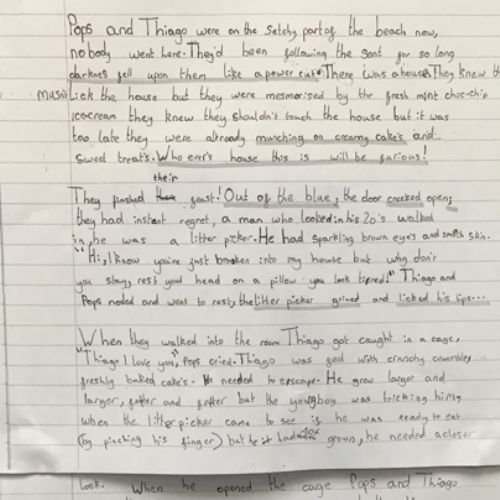 Pops and Thiago were on the setchy part of the beach now,
nobody went here. They'd been following the sent for so long
darknes fell upon them like a power cut. There was a house. They knew th
musnt lick the house but they were mesmorised by the fresh mint choc-chip
icecream they knew they shouldn't touch the house but it was
too late they were already munching on creamy cake's and
sweet treat's. Who ever's house this is will be furious!
their
They finished feast! Out of the blue, the door creeked open,
they had instant regret, a man who looked in his 20's walked
in, he was a litter picker. He had sparkling brown eye's and smooth skin.
"Hi, I know you've just broken into my house but why don't
you stay, rest your head on a pillow you look tiered!" Thiago and
Pops noded and went to rest, the litter picker grined and licked his lips...
When they walked into the room Thiago got caught in a cage,
"Thiago I love you," Pops cried. Thiago was fed with crunchy crumbley
freshly baked cake's. He needed to escape. He grew larger and
larger, fatter and fatter but the young boy was tricking him,
when the litter picker came to see if he was ready to eat
(by pinching his finger) but it hadn't grown, he needed a closer
look. When he opened the cage Pops and Thiago